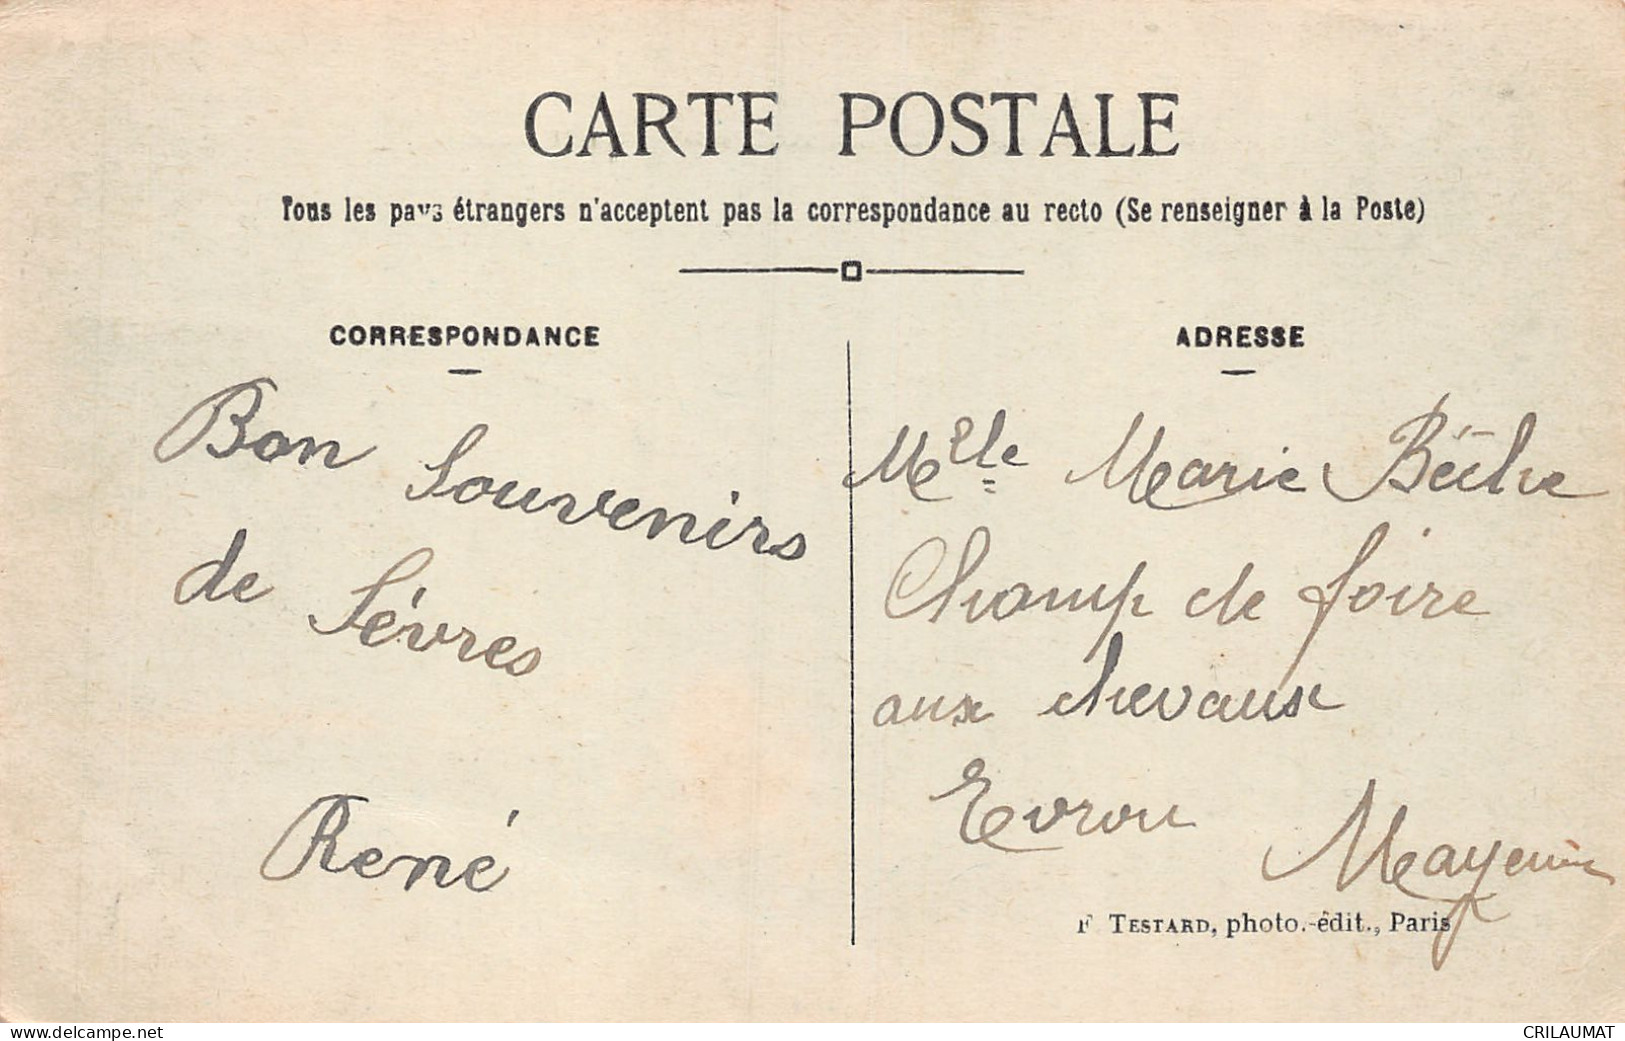 CARTE POSTALE
Tous les pays étrangers n'acceptent pas la correspondance au recto (Se renseigner à la Poste)
CORRESPONDANCE
Bon Souvenirs
de Sèvres
René
ADRESSE
Melle Marie
Champ de foire
aux chevaux
Evron Mayenne
F TESTARD, photo.-édit., Paris
delcampe.net
CRILAUMAT